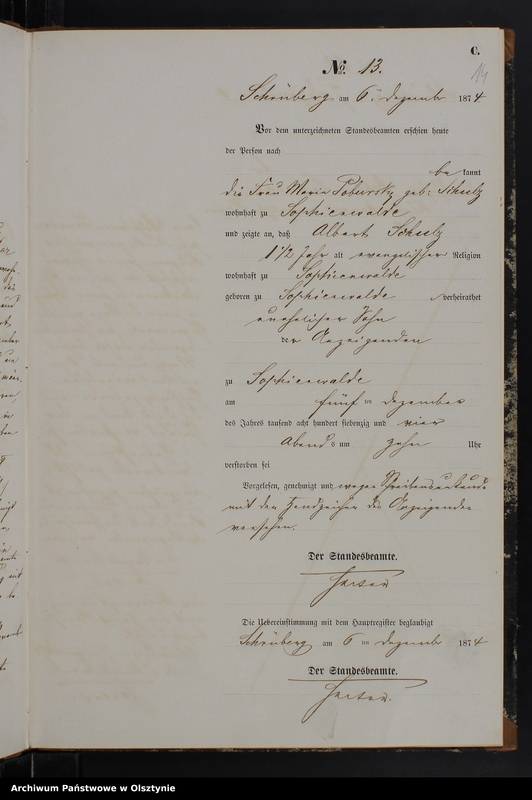 C.
14
No. 13.
Schönberg am 6ten Dezember 1874
Vor dem unterzeichneten Standesbeamten erschien heute
der Person nach
be kannt
die Frau Maria Pobursky geb: Schulz
wohnhaft zu Sophienwalde
und zeigte an, daß Albert Schulz
1 1/2 Jahr alt evangelischer Religion
wohnhaft zu Sophienwalde
geboren zu Sophienwalde verheirathet
unehelicher Sohn
der Anzeigenden
zu Sophienwalde
am fünf ten Dezember
des Jahres tausend acht hundert siebenzig und vier
Abend s um zehn Uhr
verstorben sei
Vorgelesen, genehmigt und wegen Schreibensunkunde
mit den Handzeichen des Anzeigenden
versehen.
Der Standesbeamte.
Die Uebereinstimmung mit dem Hauptregister beglaubigt
Schönberg am 6 ten Dezember 1874
Der Standesbeamte.
Archiwum Państwowe w Olsztynie